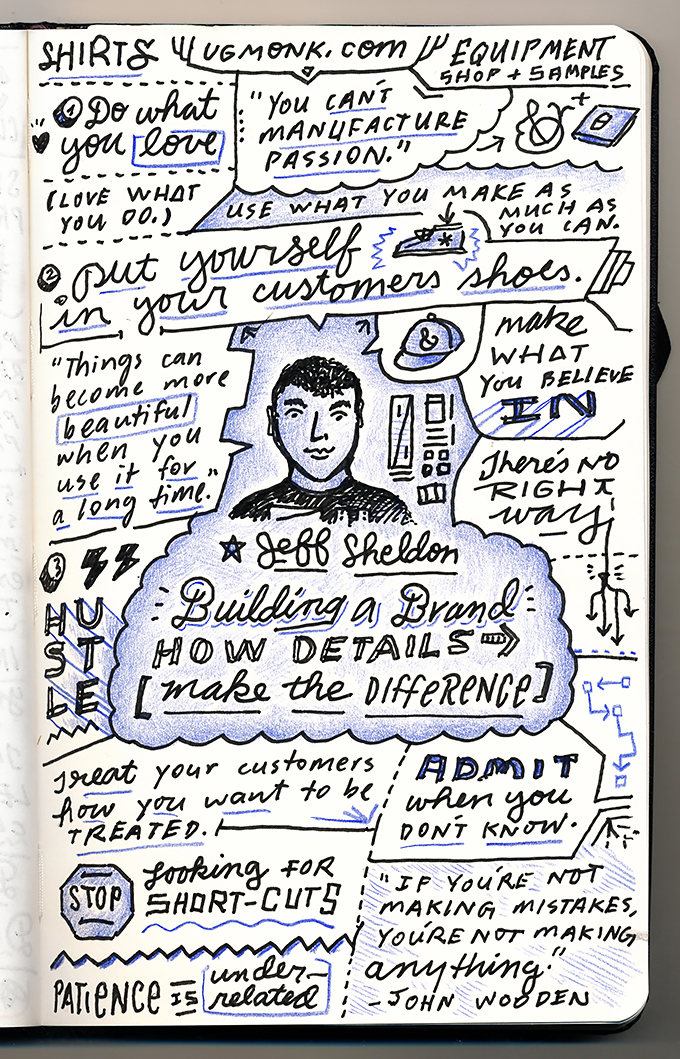 SHIRTS
UGMONK.com
EQUIPMENT
SHOP + SAMPLES
1 Do what
you love
(LOVE WHAT
YOU DO.)
"YOU CAN'T
MANUFACTURE
PASSION."
&
+
USE WHAT YOU MAKE AS
MUCH AS
YOU CAN.
2 put yourself
in your customers shoes.
"Things can
become more
beautiful
when you
use it for
a long time."
&
make
WHAT
YOU BELIEVE
IN
There's NO
RIGHT
way
3
HU
ST
LE
Jeff Sheldon
Building a Brand
HOW DETAILS
[make the DIFFERENCE]
treat your customers
how you want to be
TREATED.
ADMIT
when you
DON'T KNOW.
STOP
looking FOR
SHORT-CUTS
PATIENCE IS
under-
related
"IF YOU'RE NOT
MAKING MISTAKES,
YOU'RE NOT MAKING
anything."
- JOHN WOODEN